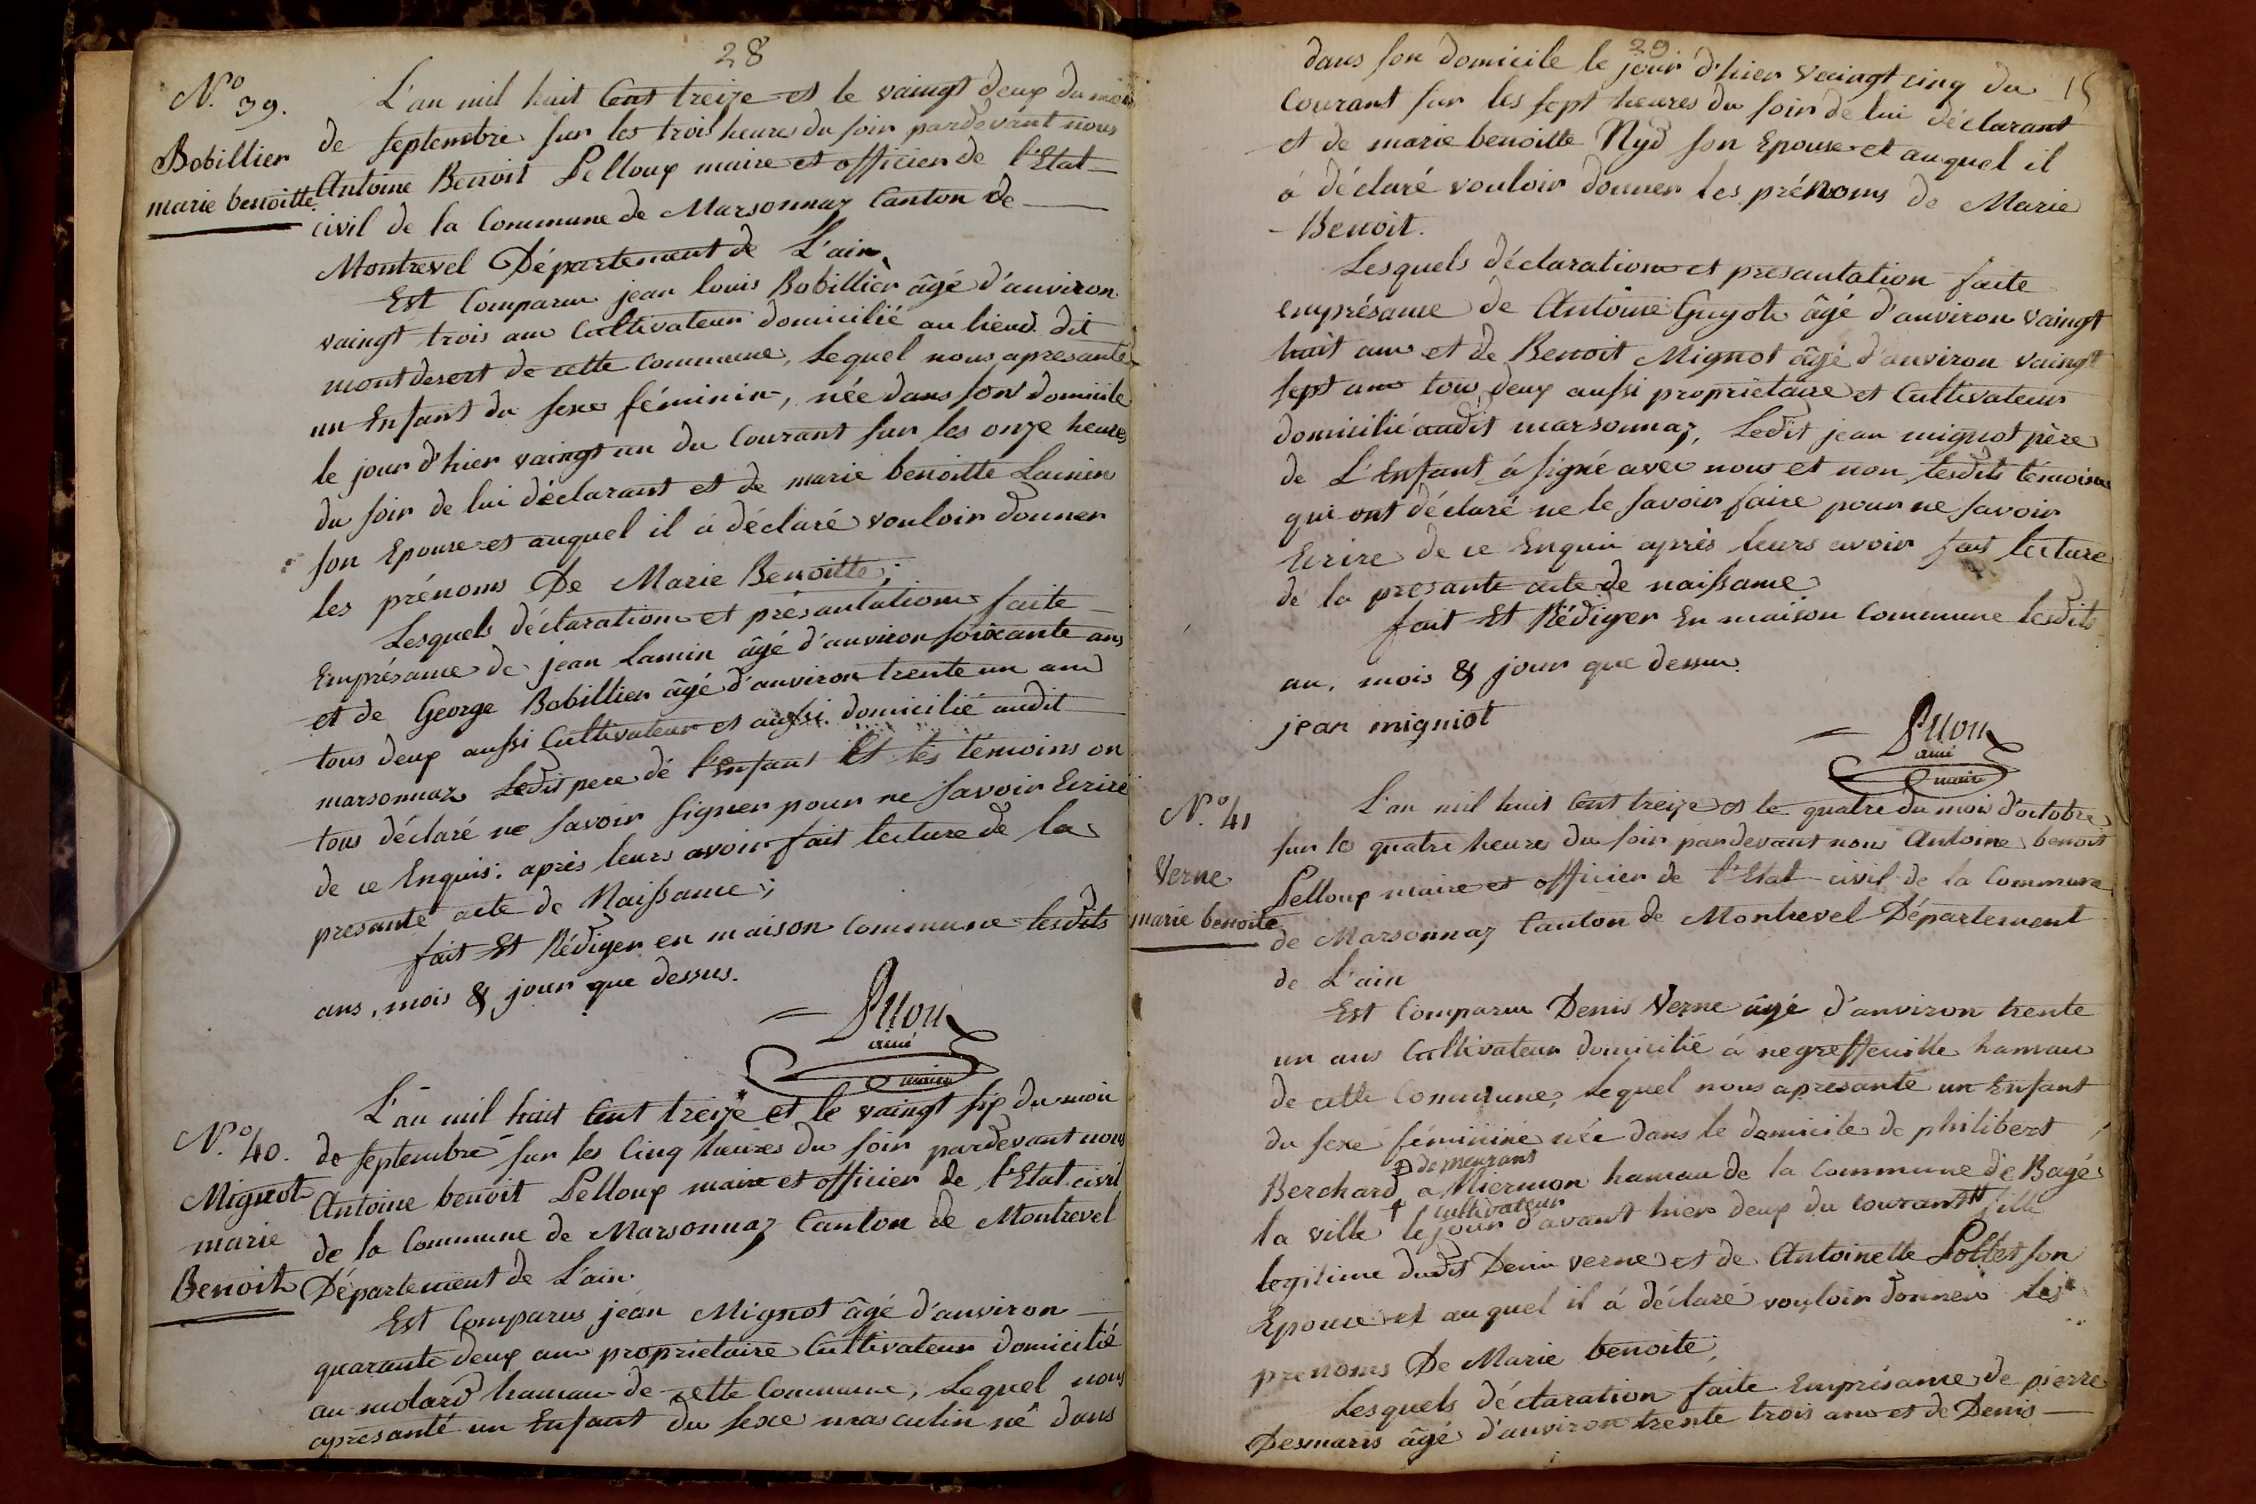 28
N.o 39.
Bobillier
marie benoitte
L'an mil huit Cent treize et le vaingt deux du mois
de septembre sur les trois heures du soir pardevant nous
Antoine Benoit Pelloux maire et officier de l'Etat
civil de la Commune de Marsonnaz Canton de
Montrevel Département de L'ain,
Est Comparu jean louis Bobillier âgé d'anviron
vaingt trois ans Cultivateur domicilié au lieud dit
mont desert de cette Commune, Lequel nous apresanté
un Enfant du sexe féminin, née dans son domicile
le jour d'hier vaingt un du Courant sur les onze heures
du soir de lui déclarant et de marie benoitte Lainin
son Epouse et auquel il á déclaré vouloir donner
les prénoms De Marie Benoitte;
Lesquels déclaration et présantation faite
Emprésance de jean Lamin âgé d'anviron soixante ans
et de George Bobillier âgé d'anviron trente un ans
tous deux aussi Cultivateur et aussi domicilié audit
marsonnaz Ledit pere de l'Enfant Et les témoins on
tous déclaré ne savoir signer pour ne savoir Ecrire
de ce Enquis: après leurs avoir fait lecture de la
presante acte de Naissance;
fait Et Rédiger en maison Commune lesdits
ans, mois & jour que dessus.
Plloux
ainé
maire
N.o 40.
Mignot
marie
Benoit
L'an mil huit Cent treize et le vaingt six du mois
de septembre sur les Cinq heures du soir pardevant nous
Antoine benoit Pelloux maire et officier de l'Etat civil
de la Commune de Marsonnaz Canton de Montrevel
Département de L'ain.
Est Comparus jean Mignot âgé d'anviron
quarante deux ans proprietaire Cultivateur domicilié
au molard hamau de cette Commune, Lequel nous
apresanté un Enfant du sexe masculin né dans
29
15
dans son domicile le jour d'hier vaingt cinq du
Courant sur les sept heures du soir de lui déclarant
et de marie benoitte Nyd son Epouse et auquel il
á déclaré vouloir donner les prénoms de Marie
Benoit.
Lesquels déclaration et presantation faite
emprésance de Antoine Guyot âgé d'anviron vaingt
huit ans et de Benoit Mignot âgé d'anviron vaingt
sept ans tous deux aussi proprietaire et Cultivateur
domicilié audit marsonnaz, Ledit jean mignot père
de L'Enfant á signé avec nous et non lesdits témoins
qui ont déclaré ne le savoir faire pour ne savoir
Ecrire de ce Enquis après leurs avoir fait lecture
de la presante acte de naissance
fait Et Rédiger En maison Commune lesdits
an, mois & jour que dessu.
jean migniot
Plloux
ainé
maire
N.o 41
Verne
marie benoite
L'an mil huit Cent treize et le quatre du mois d'octobre
sur les quatre heures du soir pardevant nous Antoine benoit
Pelloux maire et officier de l'Etat civil de la Commune
de Marsonnaz Canton de Montrevel Département
de L'ain
Est Comparu Denis Verne âgé d'anviron trente
un ans Cultivateur domicilié á negreffeuille hamau
de cette Commune, Lequel nous apresanté un Enfant
du sexe féminine née dans le domicile de philibert
demeurant
Berchard a Miermon hamau de la Commune de Bagé
† Cultivateur
la ville le jour d'avant hier deux du courant fille
legitime dudit Denis verne et de Antoinette Pottet son
Epouse et auquel il á déclaré vouloir donner les
prenoms De Marie benoite;
Lesquels déclaration faite Emprésance de pierre
Desmaris âgé d'anviron trente trois ans et de Denis